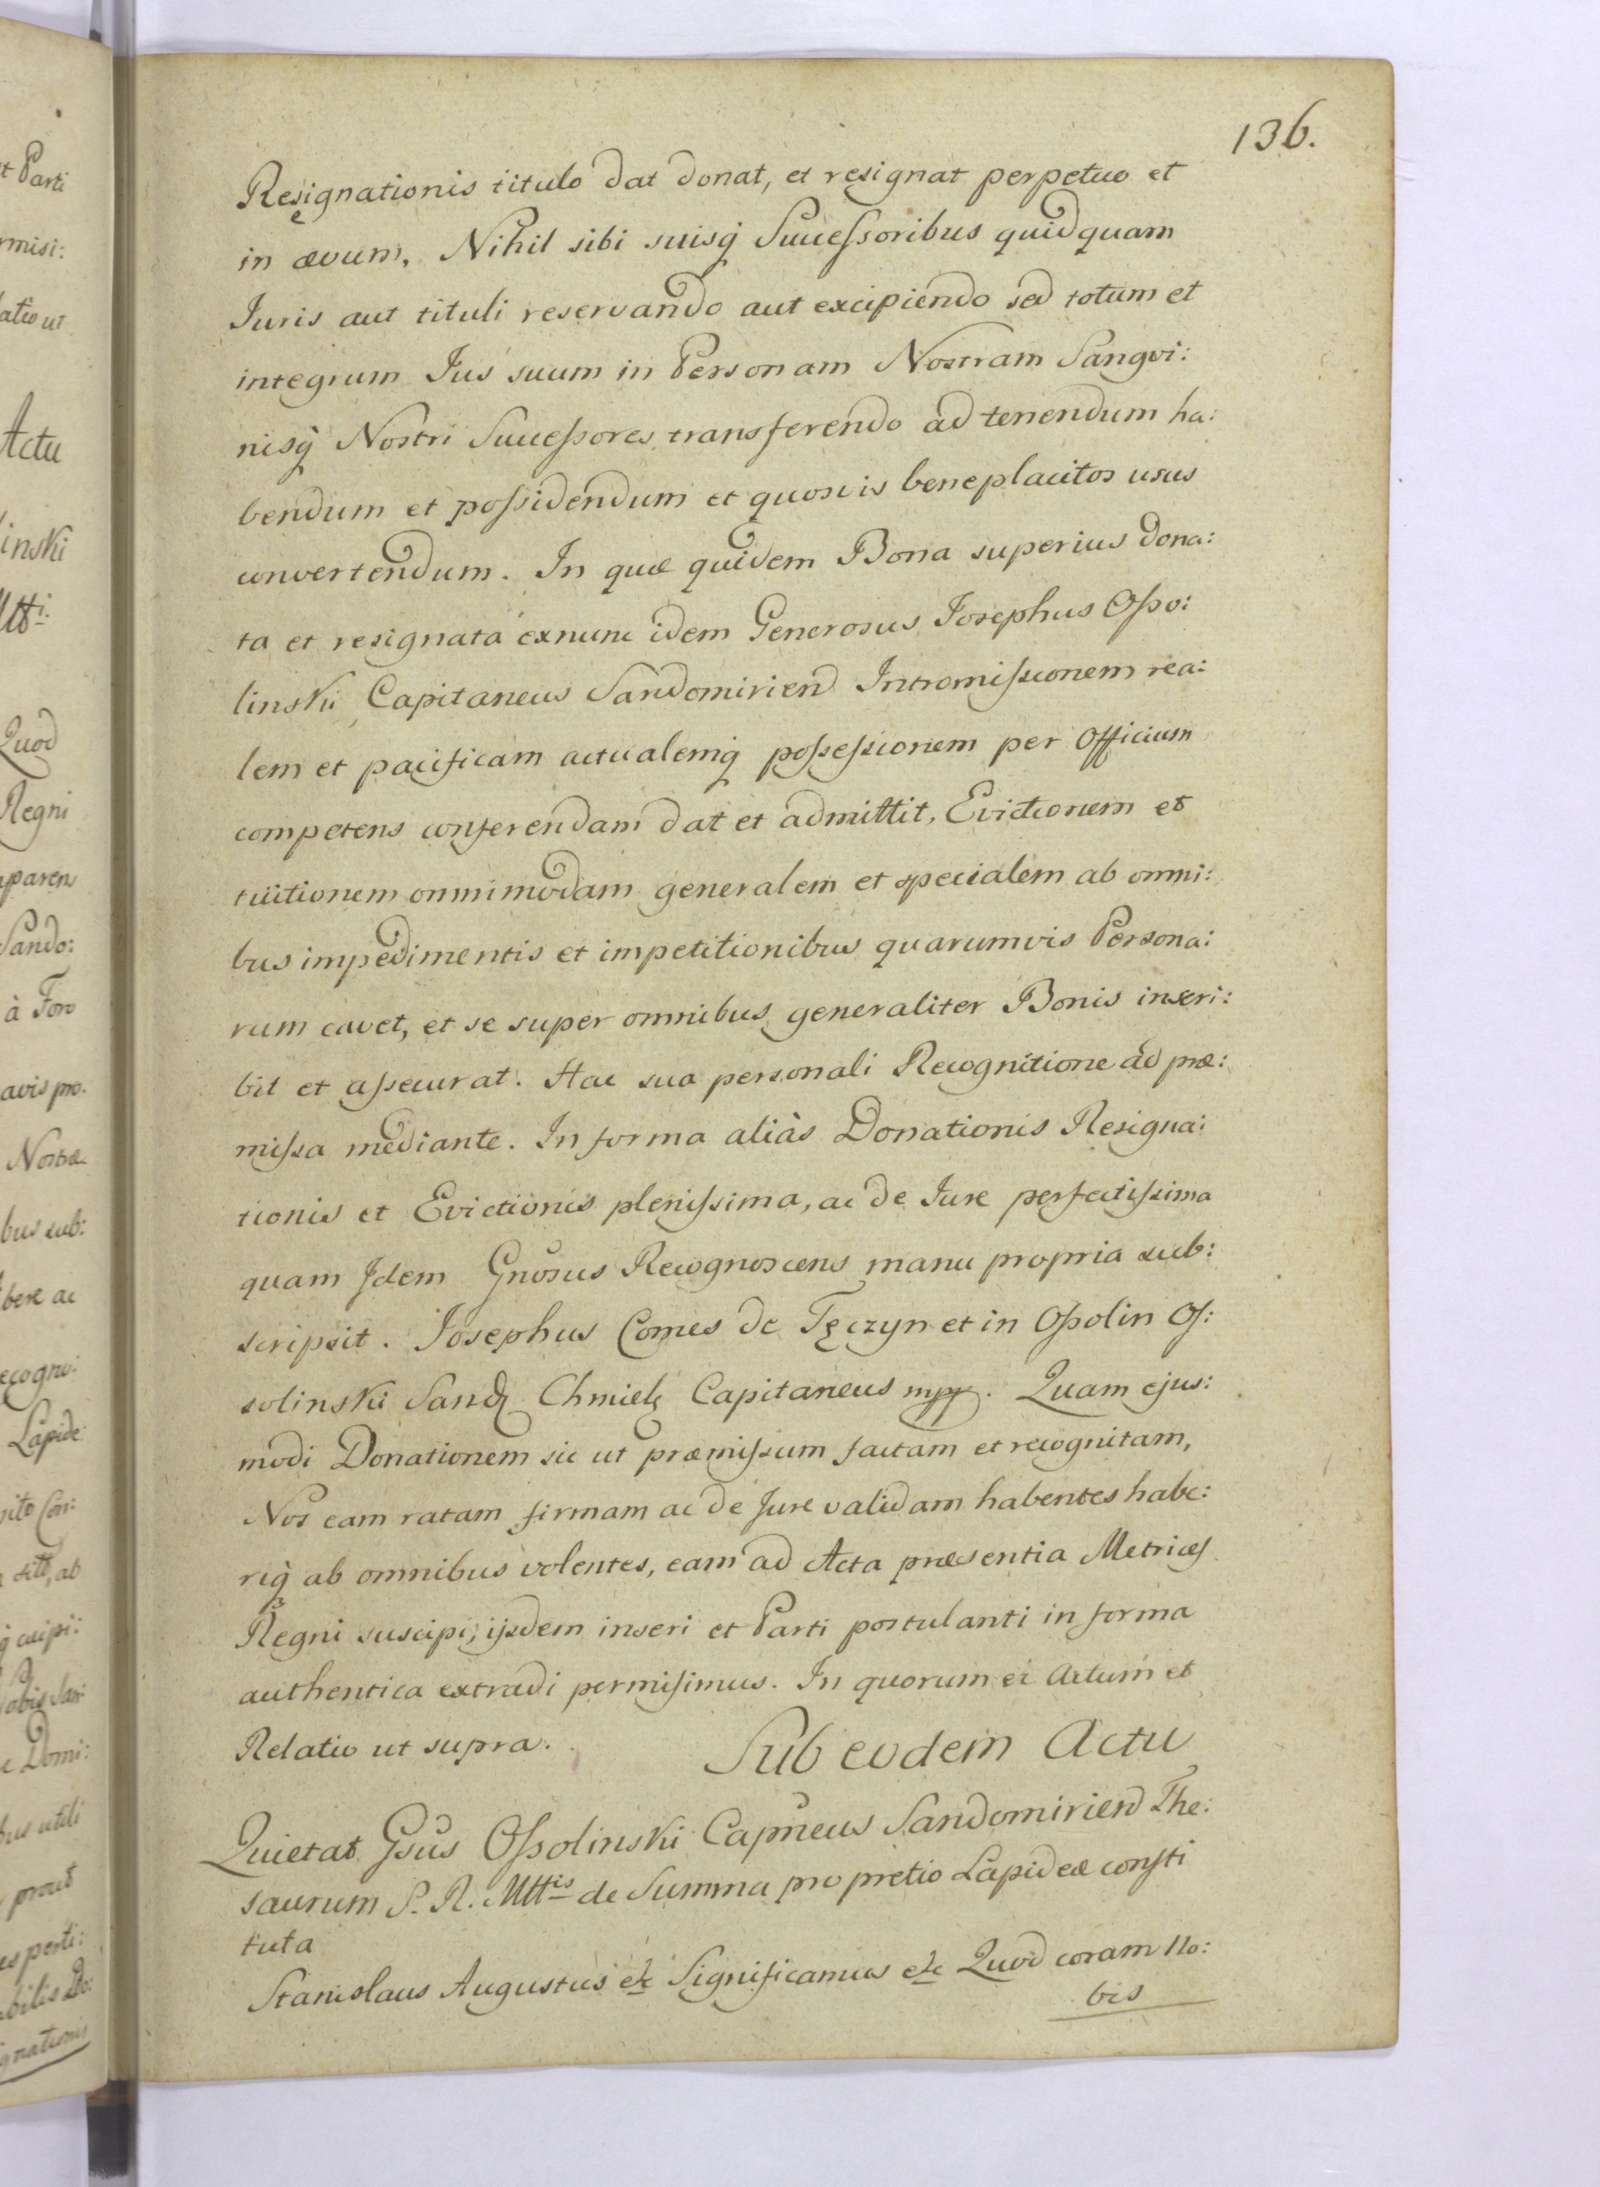 136.
Resignationis titulo dat donat, et resignat perpetuo et
in ævum. Nihil sibi suisq̃ Succeſsoribus quidquam
Iuris aut tituli reservando aut excipiendo sed totum et
integrum Ius suum in Personam Nostram Sangvi:
nisq̃ Nostri Succeſsores transferendo ad tenendum ha:
bendum et poſsidendum et quosvis beneplacitos usus
convertendum. In quæ quidem Bona superius dona:
ta et resignata exnunc idem Generosus Josephus Oſso:
linski Capitaneus Sandomirien Intromiſsionem rea:
lem et pacificam actualemq̃ poſseſsionem per Officium
competens conferendam dat et admittit, Evictionem et
tuitionem omnimodam generalem et specialem ab omni:
bus impedimentis et impetitionibus quarumvis Persona:
rum cavet, et se super omnibus generaliter Bonis inscri:
bit et aſsecurat. Hac sua personali Recognitione ad præ:
miſsa mediante. In forma aliàs Donationis Resigna:
tionis et Evictionis pleniſsima, ac de Iure perfectiſsima
quam Idem Gnõsus Recognoscens manu propria sub:
scripsit. Josephus Comes de Tęczyn et in Oſsolin Oſ:
solinski Sand. Chmiel. Capitaneus mpp. Quam ejus:
modi Donationem sic ut præmiſsum factam et recognitam,
Nos eam ratam firmam ac de Jure validam habentes habe:
riq̃ ab omnibus volentes, eam ad Acta præsentia Metrices
Regni suscipi, ijsdem inseri et Parti postulanti in forma
authentica extradi permisimus. In quorum ei Actum et
Relatio ut supra.
Sub eodem Actu
Quietat Gsus Oſsolinski Capneus Sandomirien The:
saurum S. R. Mttis de Summa pro pretio Lapideæ consti
tuta
Stanislaus Augustus etc Significamus etc Quod coram No:
bis